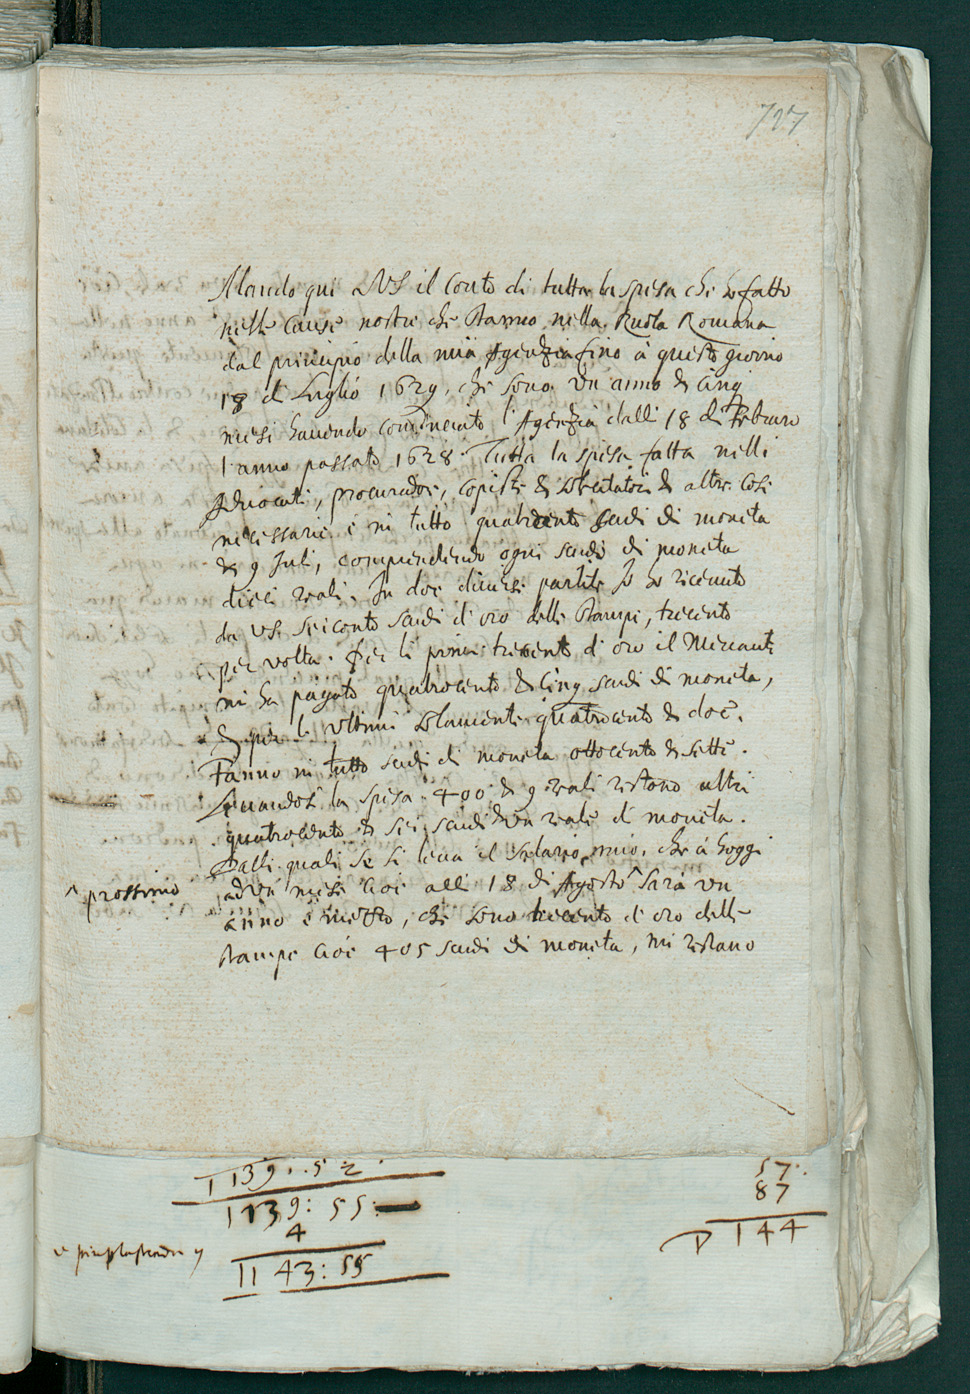 727
Mando qui a VS il conto di tutta la spesa che ho fatto
nelle cause nostre che stanno nella Ruota Romana
dal principio della mia Agenzia fino à questo giorno
18 di Luglio 1629, che sono un anno & cinq
mesi havendo cominciato l'Agenzia dalli 18 di Febraro
l'anno passato 1628. Tutta la spesa fatta nelli
Avocati, procuradori, copisti & & altre cose
necessarie è in tutto quatrocento scudi di moneta
& 9 Juli, comprendendo ogni scudo di moneta
dieci reali. In doe diverse partite Io ho ricevuto
da VS seicento scudi d'oro delle stampe, trecento
per volta. Per li primi trecento d'oro il Mercante
mi ha pagato quatrocento & cinq scudi di moneta,
& per li ultimi solamente quatrocento & doe.
Fanno in tutto scudi di moneta ottocento & sette.
Levandosi la spesa 400 & 9 reali restano altri
quatrocento & sei scudi & un reale di moneta.
Dalli quali se si leva il salario mio, che à hoggi
ad un mese cioè alli 18 di Agosto ^ sarà un
^ prossimo
anno è mezzo, che sono trecento d'oro delle
stampe cioè 405 scudi di moneta, mi restano
1139: 52
1139: 55
4
1143: 55
57
87
144